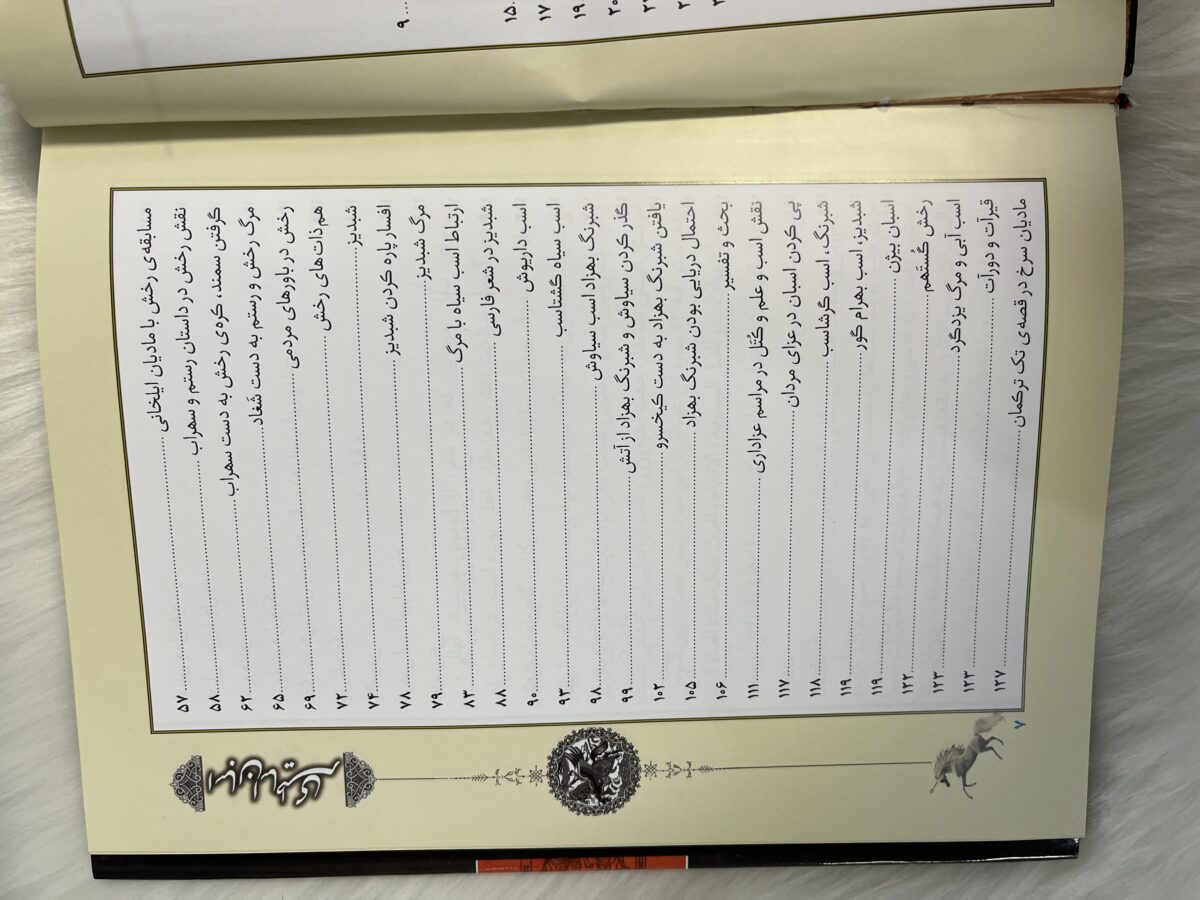 ۹
۱۵
۱۷
۱۹
مسابقه‌ی رخش با مادیان ایلخانی ۵۷
نقش رخش در داستان رستم و سهراب ۵۸
گرفتن سمند، کره‌ی رخش به دست سهراب ۶۲
مرگ رخش و رستم به دست شَغاد ۶۵
رخش در باورهای مردمی ۶۹
هم‌ذات‌های رخش ۷۲
شبدیز ۷۴
افسار پاره کردن شبدیز ۷۸
مرگ شبدیز ۷۹
ارتباط اسب سیاه با مرگ ۸۳
شبدیز در شعر فارسی ۸۸
اسب داریوش ۹۰
اسب سیاه گشتاسب ۹۳
شبرنگ بهزاد اسب سیاوش ۹۸
گذر کردن سیاوش و شبرنگ بهزاد از آتش ۹۹
یافتن شبرنگ بهزاد به دست کیخسرو ۱۰۲
احتمال دریایی بودن شبرنگ بهزاد ۱۰۵
بحث و تفسیر ۱۰۶
نقش اسب و علم و کُتَل در مراسم عزاداری ۱۱۱
پی کردن اسبان در عزای مردان ۱۱۷
شبرنگ، اسب گرشاسب ۱۱۸
شبدیز، اسب بهرام گور ۱۱۹
اسبان بیژن ۱۱۹
رخش گُستَهم ۱۲۲
اسب آبی و مرگ یزدگرد ۱۲۳
قیرآت و دورآت ۱۲۳
مادیان سرخ در قصه‌ی تک ترکمان ۱۲۷
۷